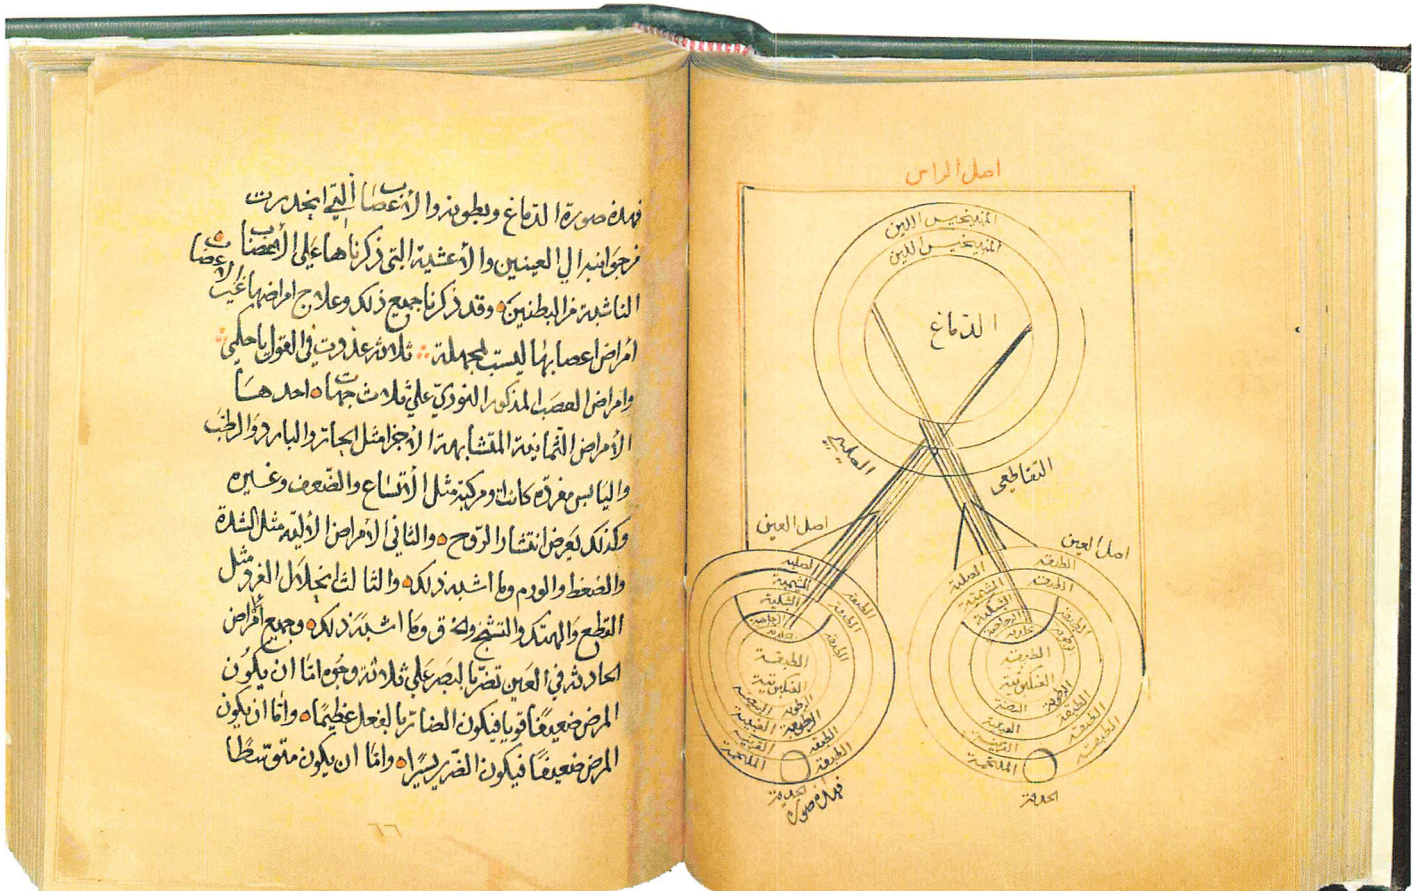 اصل الراس
المنينجيس اللين
المنينجيس اللين
الدماغ
الصليبي
التقاطعي
اصل العين
اصل العين
الصلبه
المشيمية
الشبكية
الزجاجية
الطبقه
الطبقه
الطبقه
الطبقة
العنكبوتية
الرطوبه
البيضه
الطبقه
العنبية
الطبقه
القرنيه
الطبقه
الملتحمة
الحدقة
فهذه صورة
الصلبة
الطبقه
المشيمية
الطبقه
الشبكية
الطبقه
الزجاجيه
الطبقه
العنكبوتية
الرطوبة
البيضية
الطبقة
العنبية
الطبقة
القرنية
الطبقه
الملتحمة
الحدقة
فهذه صورة الدماغ وبطونه والأعصاب التي انحدرت
من جوانبه الي العينين والأغشية التي ذكرناها علي الأعصاب
الناشية من البطنين وقد ذكرنا جميع ذلك وعلاج امراضها غير الأعصاب
امراض اعصابها ليست لمجملة ثلاثة في القول يا حكمي
وامراض العصب المذكور النوري علي ثلاث جهات احدها
الأمراض الثمانية المتشابهة الأجزا مثل الحار والبارد والرطب
واليابس مفردة كانت او مركبة مثل الأتساع والضعف وغيره
وكذلك يعرض انتشار الروح والثاني الأمراض الأليه مثل الشدة
والضغط والورم وما اشبه ذلك والثالث انحلال الفرد مثل
القطع والهتك والتشنج وما اشبه ذلك وجميع امراض
الحادثة في العين تضر بالبصر علي ثلاثة وجوه اما ان يكون
المرض ضعيفا قويا فيكون الضار بالفعل عظيما واما ان يكون
المرض ضعيفا فيكون الضرر يسيرا واما ان يكون متوسطا
٦٦